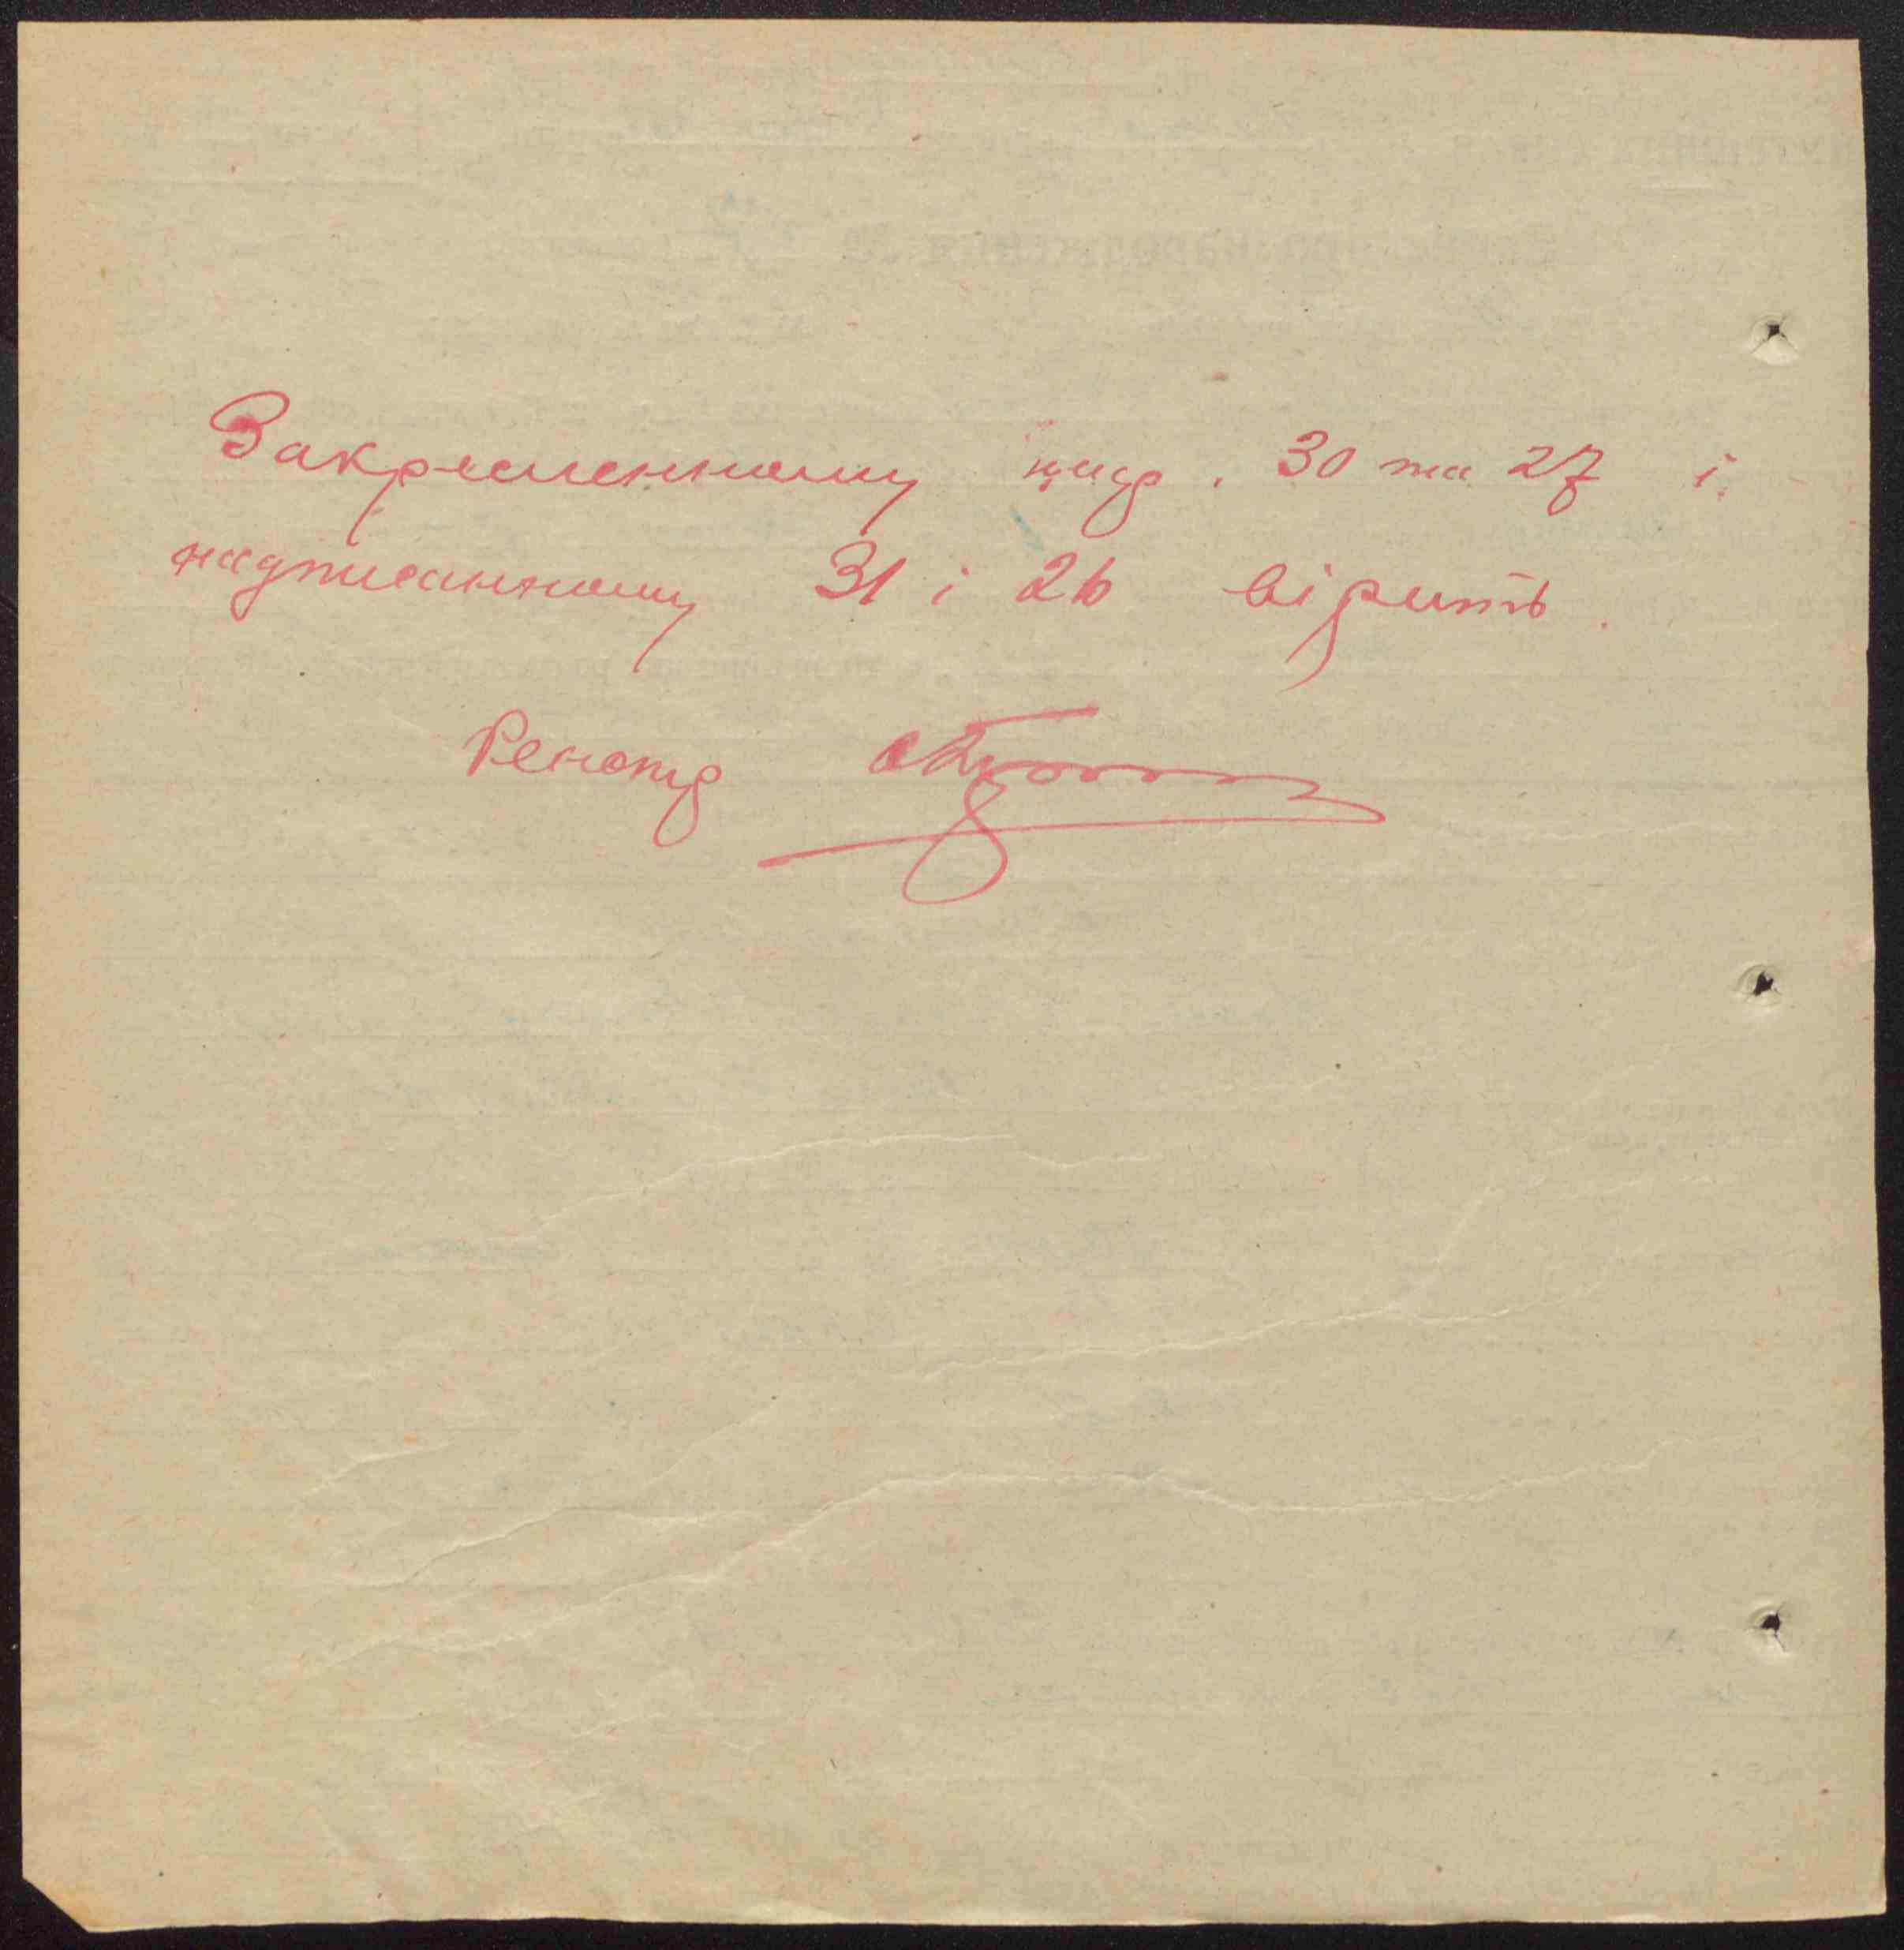 Закресленному цифр. 30 та 27 і
надписанному 31 і 26 вірить.